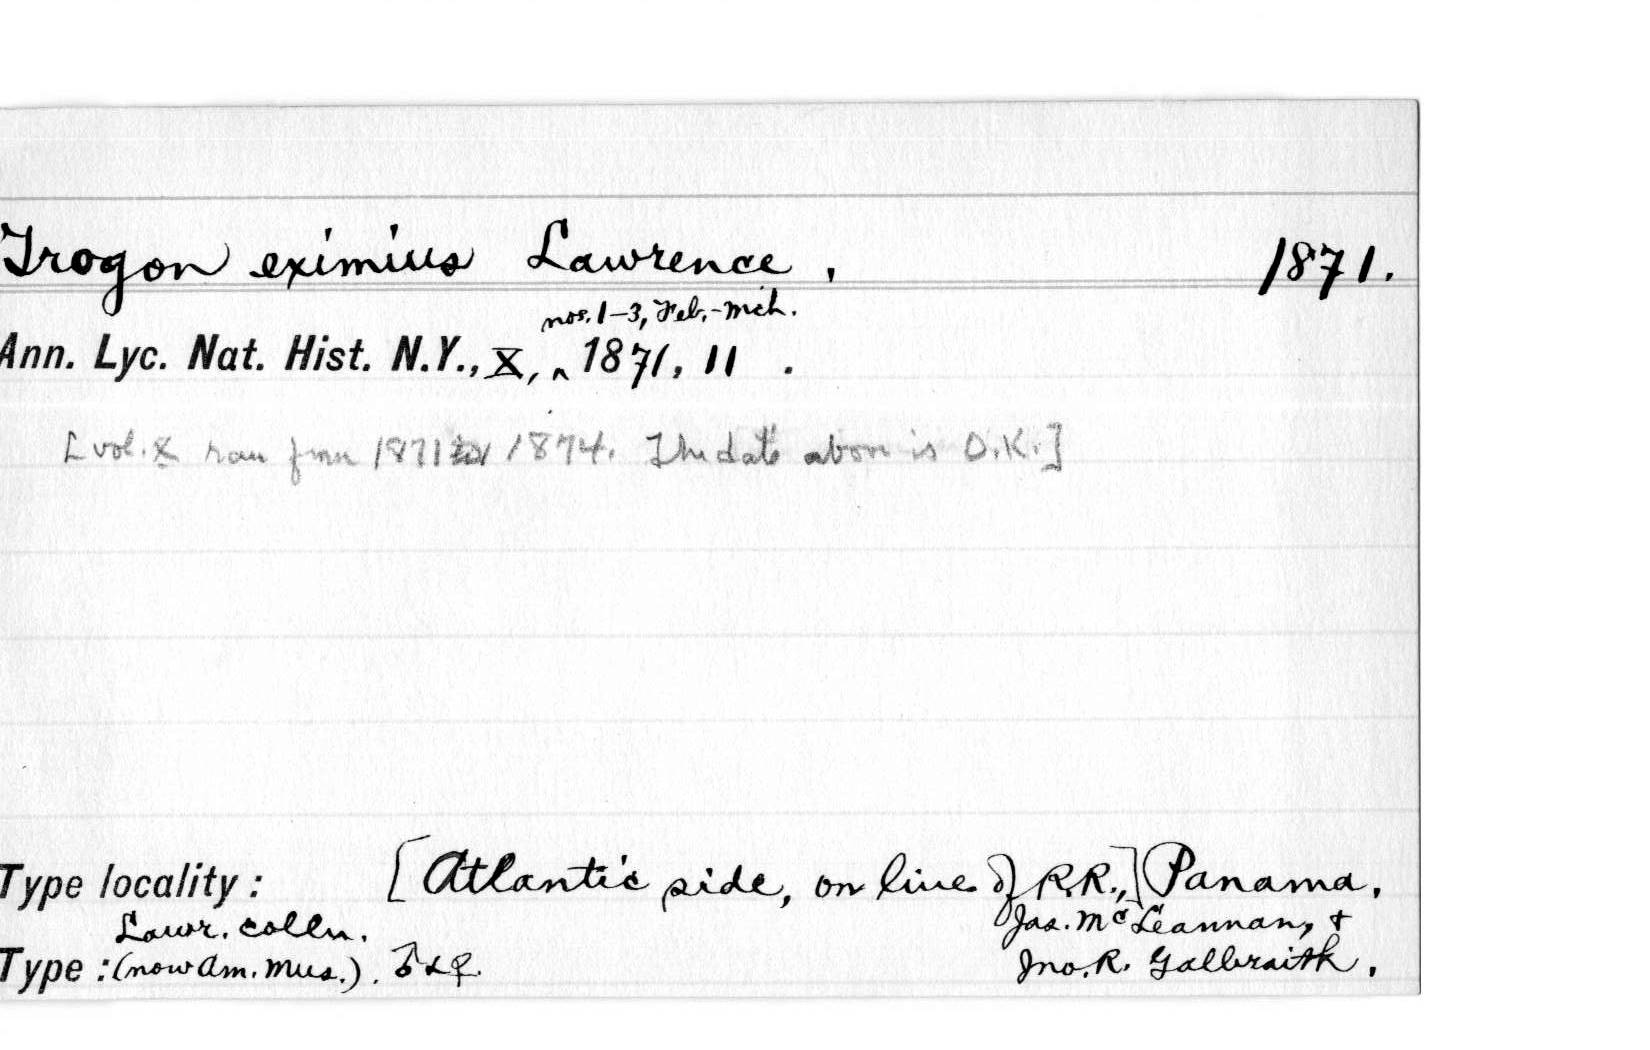 Trogon eximius Lawrence, 1871.
nos. 1-3, Feb.-Mch.
Ann. Lyc. Nat. Hist. N.Y., X, ^ 1871, 11 .
[vol. X ran from 1871 to 1874. The date above is O.K.]
Type locality: [Atlantic side, on line of R.R.,] Panama.
Lawr. colln. Jas. McLeannan, +
Type: (now Am. Mus.). ♂ & ♀. Jno. R. Galbraith.